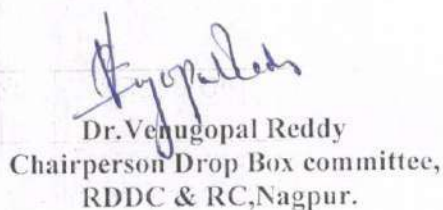 Dr.Venugopal Reddy
Chairperson Drop Box committee,
RDDC & RC,Nagpur.